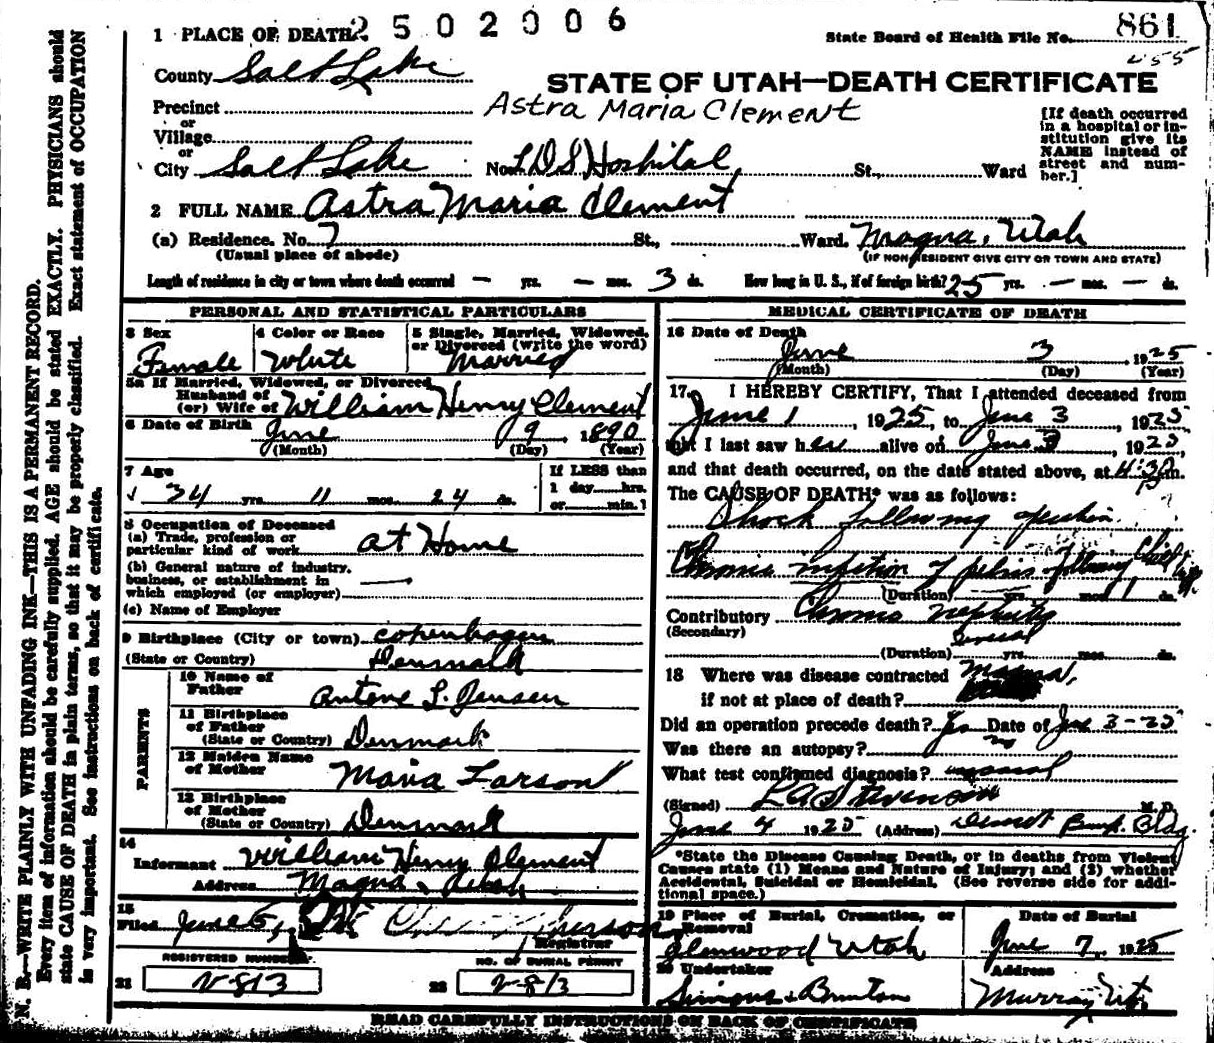 2502006
861
1 PLACE OF DEATH
State Board of Health File No.
255
County Salt Lake
STATE OF UTAH—DEATH CERTIFICATE
Precinct
Astra Maria Clement
or
Village
or
City Salt Lake No. LDS Hospital, St., Ward
[If death occurred
in a hospital or in-
stitution give its
NAME instead of
street and num-
ber.]
2 FULL NAME Astra Maria Clement
(a) Residence. No. 7 St., Ward. Magna, Utah
(Usual place of abode) (IF NON-RESIDENT GIVE CITY OR TOWN AND STATE)
Length of residence in city or town where death occurred — yrs. — mos. 3 ds. How long in U. S., if of foreign birth? 25 yrs. — mos. — ds.
PERSONAL AND STATISTICAL PARTICULARS
3 Sex
Female
4 Color or Race
White
5 Single, Married, Widowed,
or Divorced (write the word)
Married
5a If Married, Widowed, or Divorced
Husband of
(or) Wife of William Henry Clement
6 Date of Birth
June 9, 1890
(Month) (Day) (Year)
7 Age
34 yrs. 11 mos. 24 ds.
If LESS than
1 day hrs.
or min.
8 Occupation of Deceased
(a) Trade, profession or
particular kind of work At Home
(b) General nature of industry,
business, or establishment in
which employed (or employer) —
(c) Name of Employer
9 Birthplace (City or town) Copenhagen
(State or Country) Denmark
PARENTS
10 Name of
Father Antone L. Jensen
11 Birthplace
of Father
(State or Country) Denmark
12 Maiden Name
of Mother Maria Larson
13 Birthplace
of Mother
(State or Country) Denmark
14
Informant William Henry Clement
Address Magna, Utah
15
Filed June 5,
Registrar
REGISTERED NUMBER
NO. OF BURIAL PERMIT
21 V-813 22 V-813
MEDICAL CERTIFICATE OF DEATH
16 Date of Death
June 3 1925
(Month) (Day) (Year)
17. I HEREBY CERTIFY, That I attended deceased from
June 1, 1925, to June 3, 1925
that I last saw her alive on June 3, 1925
and that death occurred, on the date stated above, at 4:30 Pm.
The CAUSE OF DEATH* was as follows:
Shock following operation
Chronic infection of pelvis following Child
(Duration) yrs. mos. 1 ds.
Contributory Chronic nephritis
(Secondary) several
(Duration) yrs. mos. ds.
18 Where was disease contracted Magna,
if not at place of death?
Did an operation precede death? Yes Date of June 3-25
Was there an autopsy? no
What test confirmed diagnosis?
(Signed) L A Stevenson M. D.
June 4 1925 (Address) Deseret Bank Bldg.
*State the Disease Causing Death, or in deaths from Violent
Causes state (1) Means and Nature of Injury; and (2) whether
Accidental, Suicidal or Homicidal. (See reverse side for addi-
tional space.)
19 Place of Burial, Cremation, or
Removal
Glenwood Utah
Date of Burial
June 7, 1925
20 Undertaker
Address
Murray, Ut.
READ CAREFULLY INSTRUCTIONS ON BACK OF CERTIFICATE
N. B.—WRITE PLAINLY WITH UNFADING INK—THIS IS A PERMANENT RECORD.
Every item of information should be carefully supplied. AGE should be stated EXACTLY. PHYSICIANS should
state CAUSE OF DEATH in plain terms, so that it may be properly classified. Exact statement of OCCUPATION
is very important. See instructions on back of certificate.